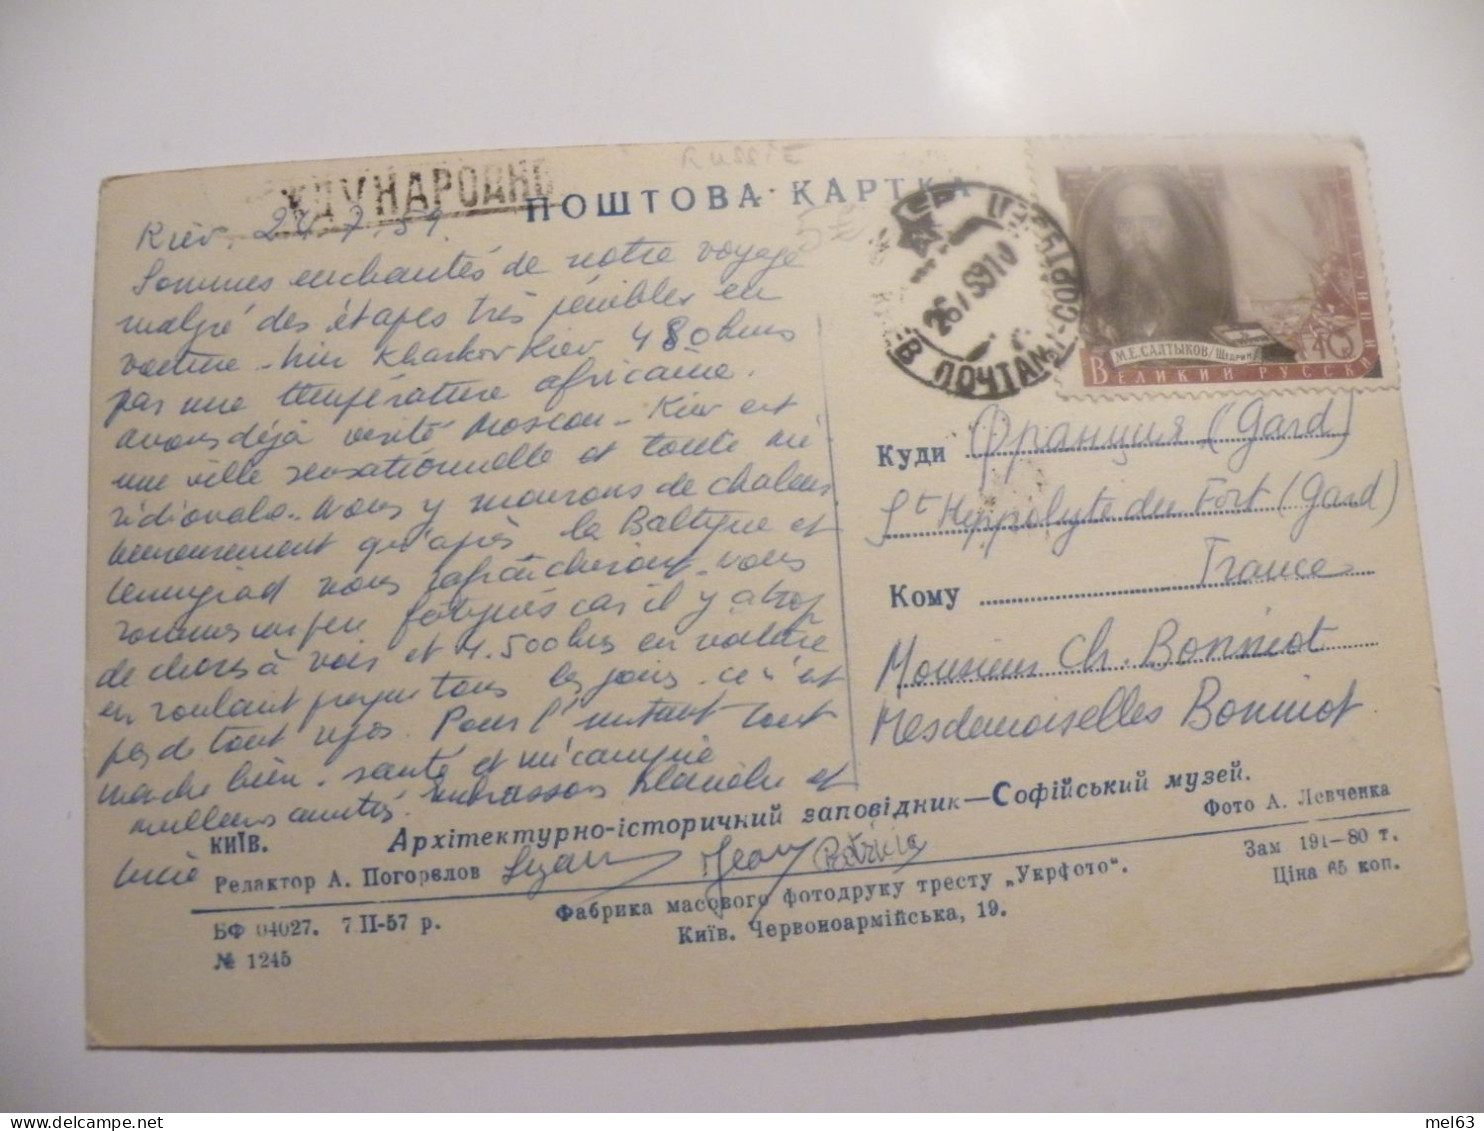 RUSSIE
ЖДУНАРОДНО
ПОШТОВА КАРТКА
Kiev. 7.59.
Sommes enchantés de notre voyage
malgré des étapes très pénibles en
voiture - Kharkov Kiev 480 kms
par une température africaine.
avons déjà visité Moscou - Kiev est
une ville sensationnelle et toute mé
ridionale. Nous y mourons de chaleur
heureusement qu'après la Baltique et
Leningrad nous rafraîchiront. nous
sommes un peu fatigués car il y a trop
de choses à voir et 4.500 kms en voiture
en roulant presque tous les jours. ce n'est
pas de tout repos. Pour l'instant tout
marche bien. santé et mécanique
meilleures amitiés. Embrassons Blanche et
Lucie
Jean Patricia
26 7 59 10
ПОЧТАМТ
М.Е.САЛТЫКОВ/Щедрин
ВЕЛИКИЙ РУССКИЙ ПИСАТЕЛЬ
40
Куди Франция (Gard)
St Hippolyte du Fort (Gard)
France
Кому
Monsieur Ch. Bonniot
Mesdemoiselles Bonniot
КИЇВ. Архітектурно-історичний заповідник—Софійський музей.
Фото А. Левченка
Редактор А. Погорєлов
Зам 191-80 т.
БФ 04027. 7 II-57 р.
Фабрика масового фотодруку тресту „Укрфото".
Ціна 65 коп.
№ 1245
Київ. Червоноармійська, 19.
mel63